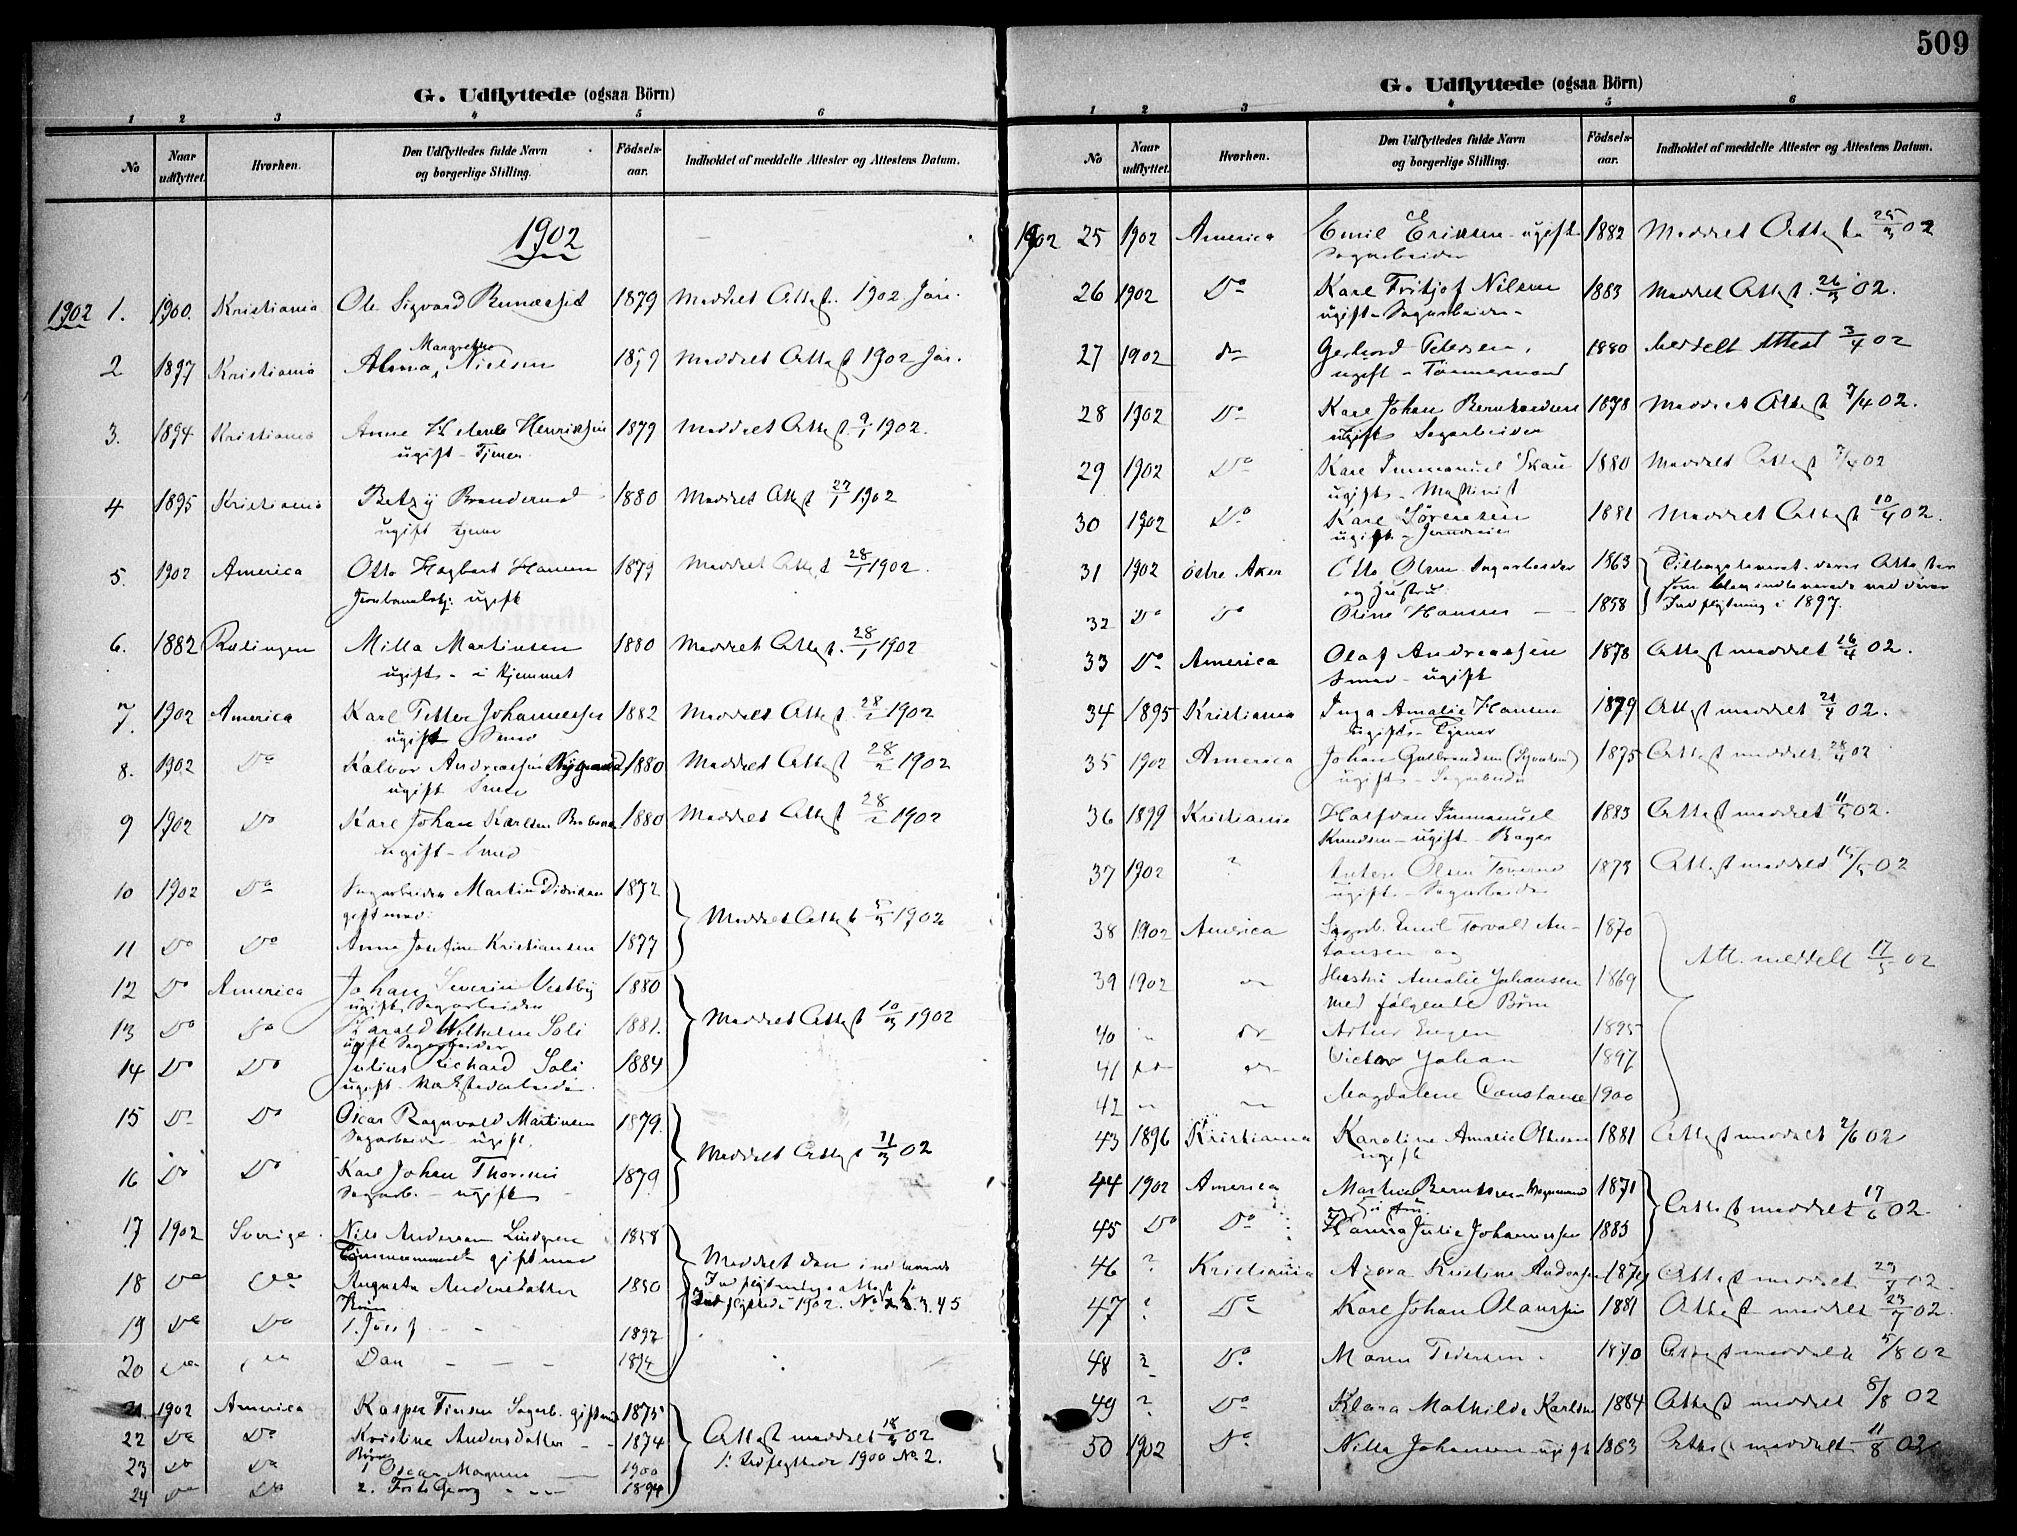 509
G. Udflyttede (ogsaa Börn)
1 2 3 4 5 6
No
Naar udflyttet.
Hvorhen.
Den Udflyttedes fulde Navn og borgerlige Stilling.
Födsels-aar.
Indholdet af meddelte Attester og Attestens Datum.
1902
1902 1. 1900. Kristiania Ole Sigvard 1879 Meddelt Attest 1902 Jan.
2 1897 Kristiania Alma Margrethe Nielsen 1879 Meddelt Attest 1902 Jan.
3. 1894 Kristiania Anne Helene Henriksen 1879 Meddelt Attest 9/1 1902.
ugift - Tjener
4 1895 Kristiania Betzy 1880 Meddelt Attest 27/1 1902
ugift tjener
5. 1902 America Otto Hagbart Hansen 1879 Meddelt Attest 28/1 1902.
ugift
6. 1882 Rælingen Milla Martinsen 1880 Meddelt Attest 28/1 1902
ugift - i Hjemmet
7. 1902 America Karl Petter Johannessen 1882 Meddelt Attest 28/2 1902
ugift Smed
8. 1902 Do Halvor Andreassen Nygaard 1880 Meddelt Attest 28/2 1902
ugift Smed
9 1902 Do Karl Johan Karlsen 1880 Meddelt Attest 28/2 1902
ugift - Smed
10 1902 Do Sagarbeider Martin Didriksen 1872
gift med:
Meddelt Attest 5/3 1902
11 Do Do Anna Josefine Kristiansen 1877
12 Do America Johan Severin Vestby 1880
ugift Sagarbeider
13 Do Do Harald Wilhelm Soli 1881.
ugift Sagarbeider
Meddelt Attest 10/3 1902
14 Do Do Julius Richard Soli 1884
ugift
15 Do Do Oscar Ragnvald Martinsen 1879.
Sagarbeider ugift.
Meddelt Attest 11/3 02
16 Do Do Karl Johan 1879
Sagarb. - ugift
17 1902 Sverige. Nils Andersson Lindgren 1858
Tømmermand gift med
18 Do Do Augusta Andersdatter 1850
Børn
Meddelt den
1902. No 45
19 Do Do 1. Josef 1892
20 Do Do Dan 1894
21 1902 America Kasper Finsen Sagarb. gift med 1875
22 Do Do Kristine Andersdatter 1874
Børn
Attest meddelt 18/3 02
1900 No 2.
23 Do Do 1 Oscar Magnus 1900
24 Do Do 2. Frits Georg 1894
G. Udflyttede (ogsaa Börn)
1 2 3 4 5 6
No
Naar udflyttet.
Hvorhen.
Den Udflyttedes fulde Navn og borgerlige Stilling.
Födsels-aar.
Indholdet af meddelte Attester og Attestens Datum.
1902 25 1902 America Emil Eriksen - ugift 1882 Meddelt Attest 25/3 02
Sagarbeider
26 1902 Do Karl Fritjof Nilsen 1883 Meddelt Attest. 26/3 02.
ugift - Sagarbeider -
27 1902 do Gerhard Petersen, 1880 Meddelt Attest 3/4 02
ugift - Tømmermand
28 1902 Do Karl Johan Bernhardsen 1878 Meddelt Attest 7/4 02.
ugift Sagarbeider
29 1902 Do Karl Immanuel Skau 1880 Meddelt Attest 7/4 02
ugift - Maskinist
30 1902 Do Karl Sørensen 1881 Meddelt Attest 10/4 02.
ugift -
31 1902 Østre Aker Otto Olsen Sagarbeider 1863 Tilbageleveret deres Attester
og Hustru som
32 Do Do Oline Hansen 1858 Indflytning i 1897.
33 Do America Olaf Andreassen 1878 Attest meddelt 26/4 02.
Smed - ugift
34 1895 Kristiania Inga Amalie Hansen 1879 Attest meddelt 21/4 02.
ugift - Tjener
35 1902 America Johan Gulbrandsen 1875 Attest meddelt 28/4 02
ugift - Sagarbeider
36 1899 Kristiania Halfdan Immanuel 1883 Attest meddelt 11/5 02.
Knudsen - ugift - Bager
37 1902 " Olsen 1873 Attest meddelt 15/5 02
ugift - Sagarbeider
38 1902 America Sagarb. Emil Torvald An- 1870
tonsen og
Att. meddelt 17/5 02
39 1902 do Hustru Amalie Johansen 1869
med følgende Børn
40 " do Artur Eugen 1895
41 do do Victor Johan 1897
42 " " Magdalene Constance 1900
43 1896 Kristiania Karoline Amalie Ottesen 1881 Attest meddelt 2/6 02
ugift
44 1902 America Martin Berntsen 1871
og Hustru
Attest meddelt 17/6 02
45 Do Do Hanna Julie Johannessen 1885
46 ? Kristiania Azora Kristine Andersen 1879 Attest meddelt 23/7 02.
47 ? Do Karl Johan Olaussen 1881 Attest meddelt 23/7 02.
48 ? Do Maren Pedersen. 1870 Attest meddelt 5/8 02
49 ? Do Klara Mathilde Karlsen 1884 Attest meddelt 8/8 02
50 1902 Do Nilla Johansen ugift 1863 Attest meddelt 11/8 02